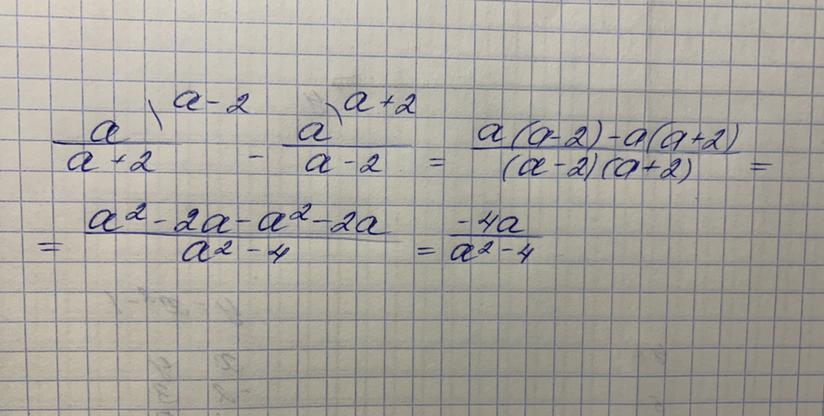 a/(a+2) \ a-2 - a/(a-2) \ a+2 = (a(a-2)-a(a+2))/((a-2)(a+2)) =
= (a²-2a-a²-2a)/(a²-4) = (-4a)/(a²-4)